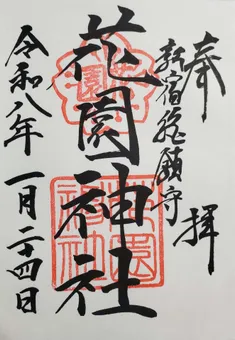 奉拝
新宿総鎮守
花園神社
令和八年一月二十四日
花園神社